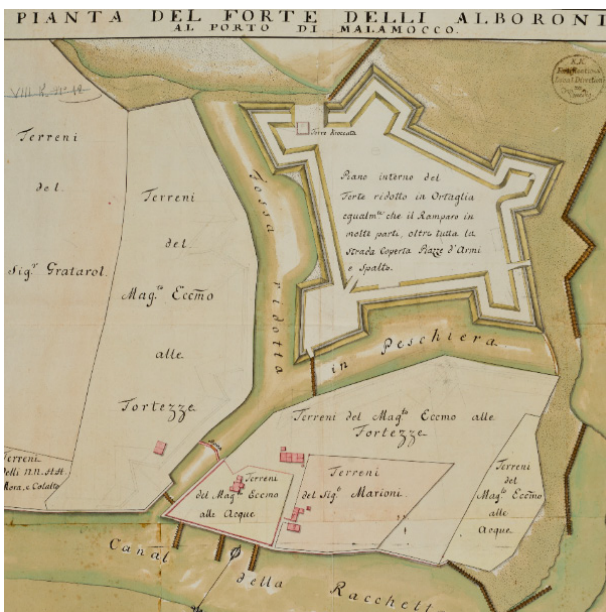 PIANTA DEL FORTE DELLI ALBORONI
AL PORTO DI MALAMOCCO.
VIII
Terreni
del
Sig.r Gratarol.
Terreni
del
Mag.to Eccmo
alle
Fortezze
Fossa ridotta in Peschiera
Torre
Piano interno del
Forte ridotto in Ortaglia
egualm.te che il Ramparo in
molte parti, oltre tutta la
Strada Coperta Piazze d'Armi
e Spalto.
K.K.
Terreni del Mag.to Eccmo alle
Fortezze
Terreni
delli NN. HH.
Mora, e Colalto
Terreni
del Mag.to Eccmo
alle Acque
Terreni
del Sig.r Marioni.
Terreni
del
Mag.to Eccmo
alle
Acque
Canal della Racchetta